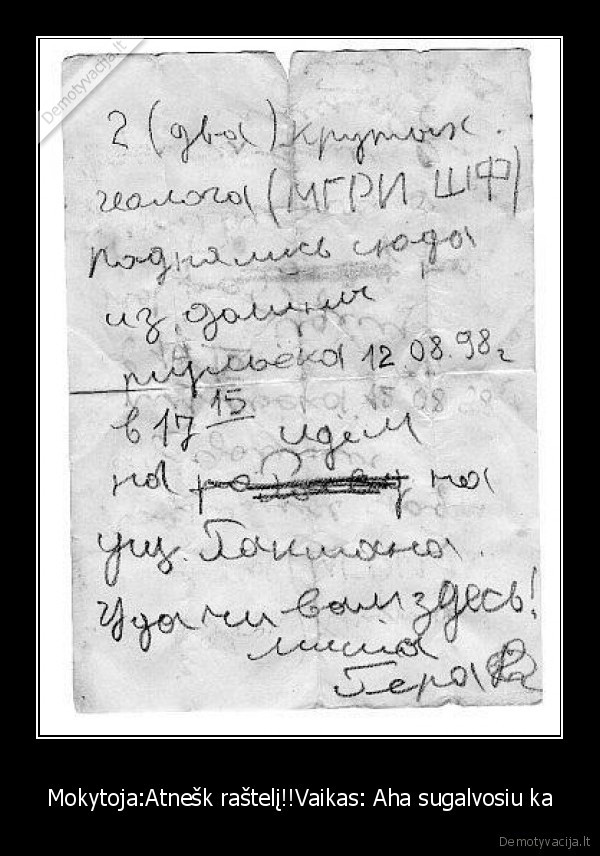 Demotyvacija.lt
2 (два) крутых
геолога (МГРИ ШФ)
поднялись сюда
из долины
ручейка 12.08.98г
в 17 15 идём
на на
ущ.
Удачи вам здесь!
миша
Гера
Mokytoja:Atnešk raštelį!!Vaikas: Aha sugalvosiu ka
Demotyvacija.lt